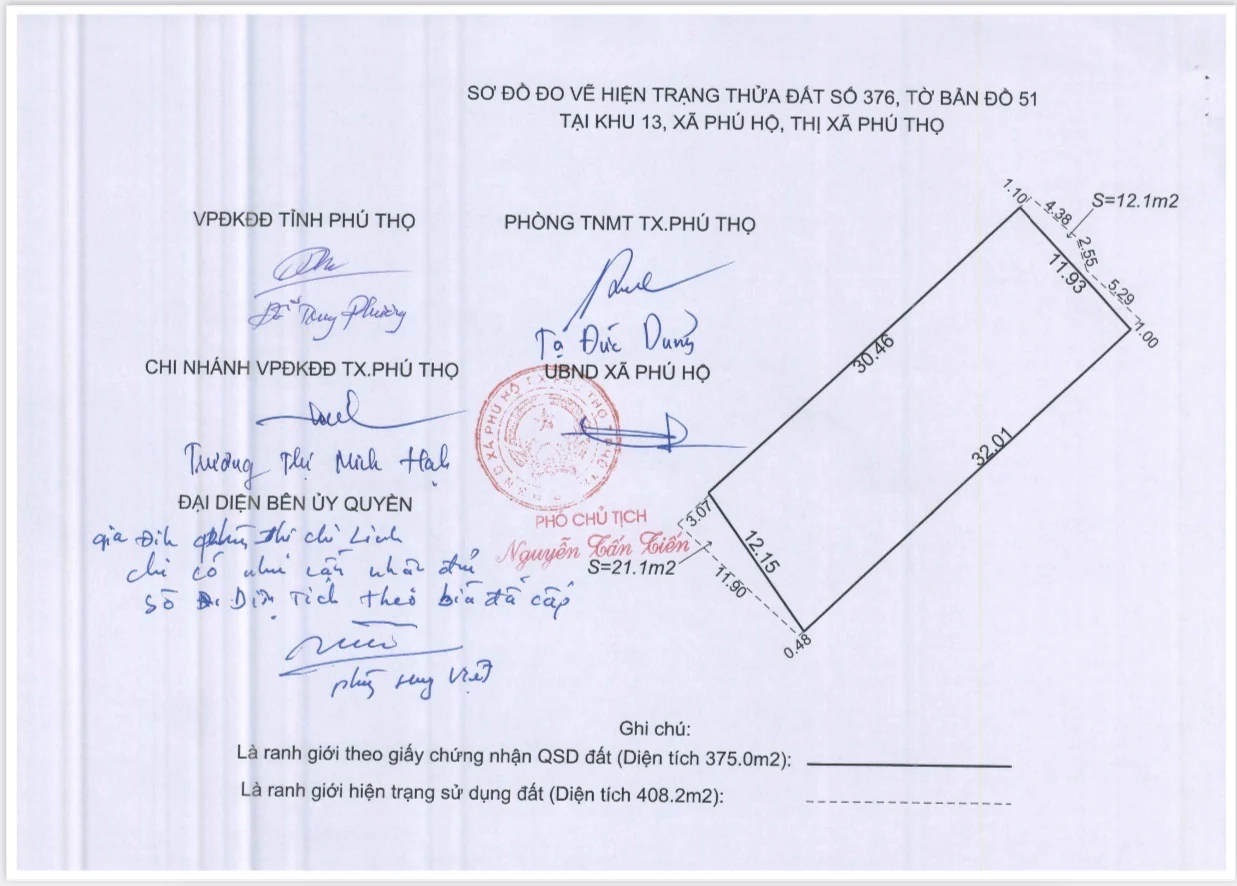 SƠ ĐỒ ĐO VẼ HIỆN TRẠNG THỬA ĐẤT SỐ 376, TỜ BẢN ĐỒ 51
TẠI KHU 13, XÃ PHÚ HỘ, THỊ XÃ PHÚ THỌ
VPĐKĐĐ TỈNH PHÚ THỌ
PHÒNG TNMT TX.PHÚ THỌ
Phương
Tạ Đức Dũng
CHI NHÁNH VPĐKĐĐ TX.PHÚ THỌ
UBND XÃ PHÚ HỘ
XÃ PHÚ HỘ TX PHÚ THỌ
Trương Thị Minh Hạnh
ĐẠI DIỆN BÊN ỦY QUYỀN
PHÓ CHỦ TỊCH
Nguyễn Tấn Tiến
gia Đìh phùng thi chi Linh
chỉ có nhu cầu nhân đủ
số Diện Tích theo bìa đã cấp
phùng Việt
1.10
4.38
S=12.1m2
2.55
11.93
5.29
1.00
30.46
32.01
3.07
12.15
S=21.1m2
11.90
0.48
Ghi chú:
Là ranh giới theo giấy chứng nhận QSD đất (Diện tích 375.0m2):
Là ranh giới hiện trạng sử dụng đất (Diện tích 408.2m2):